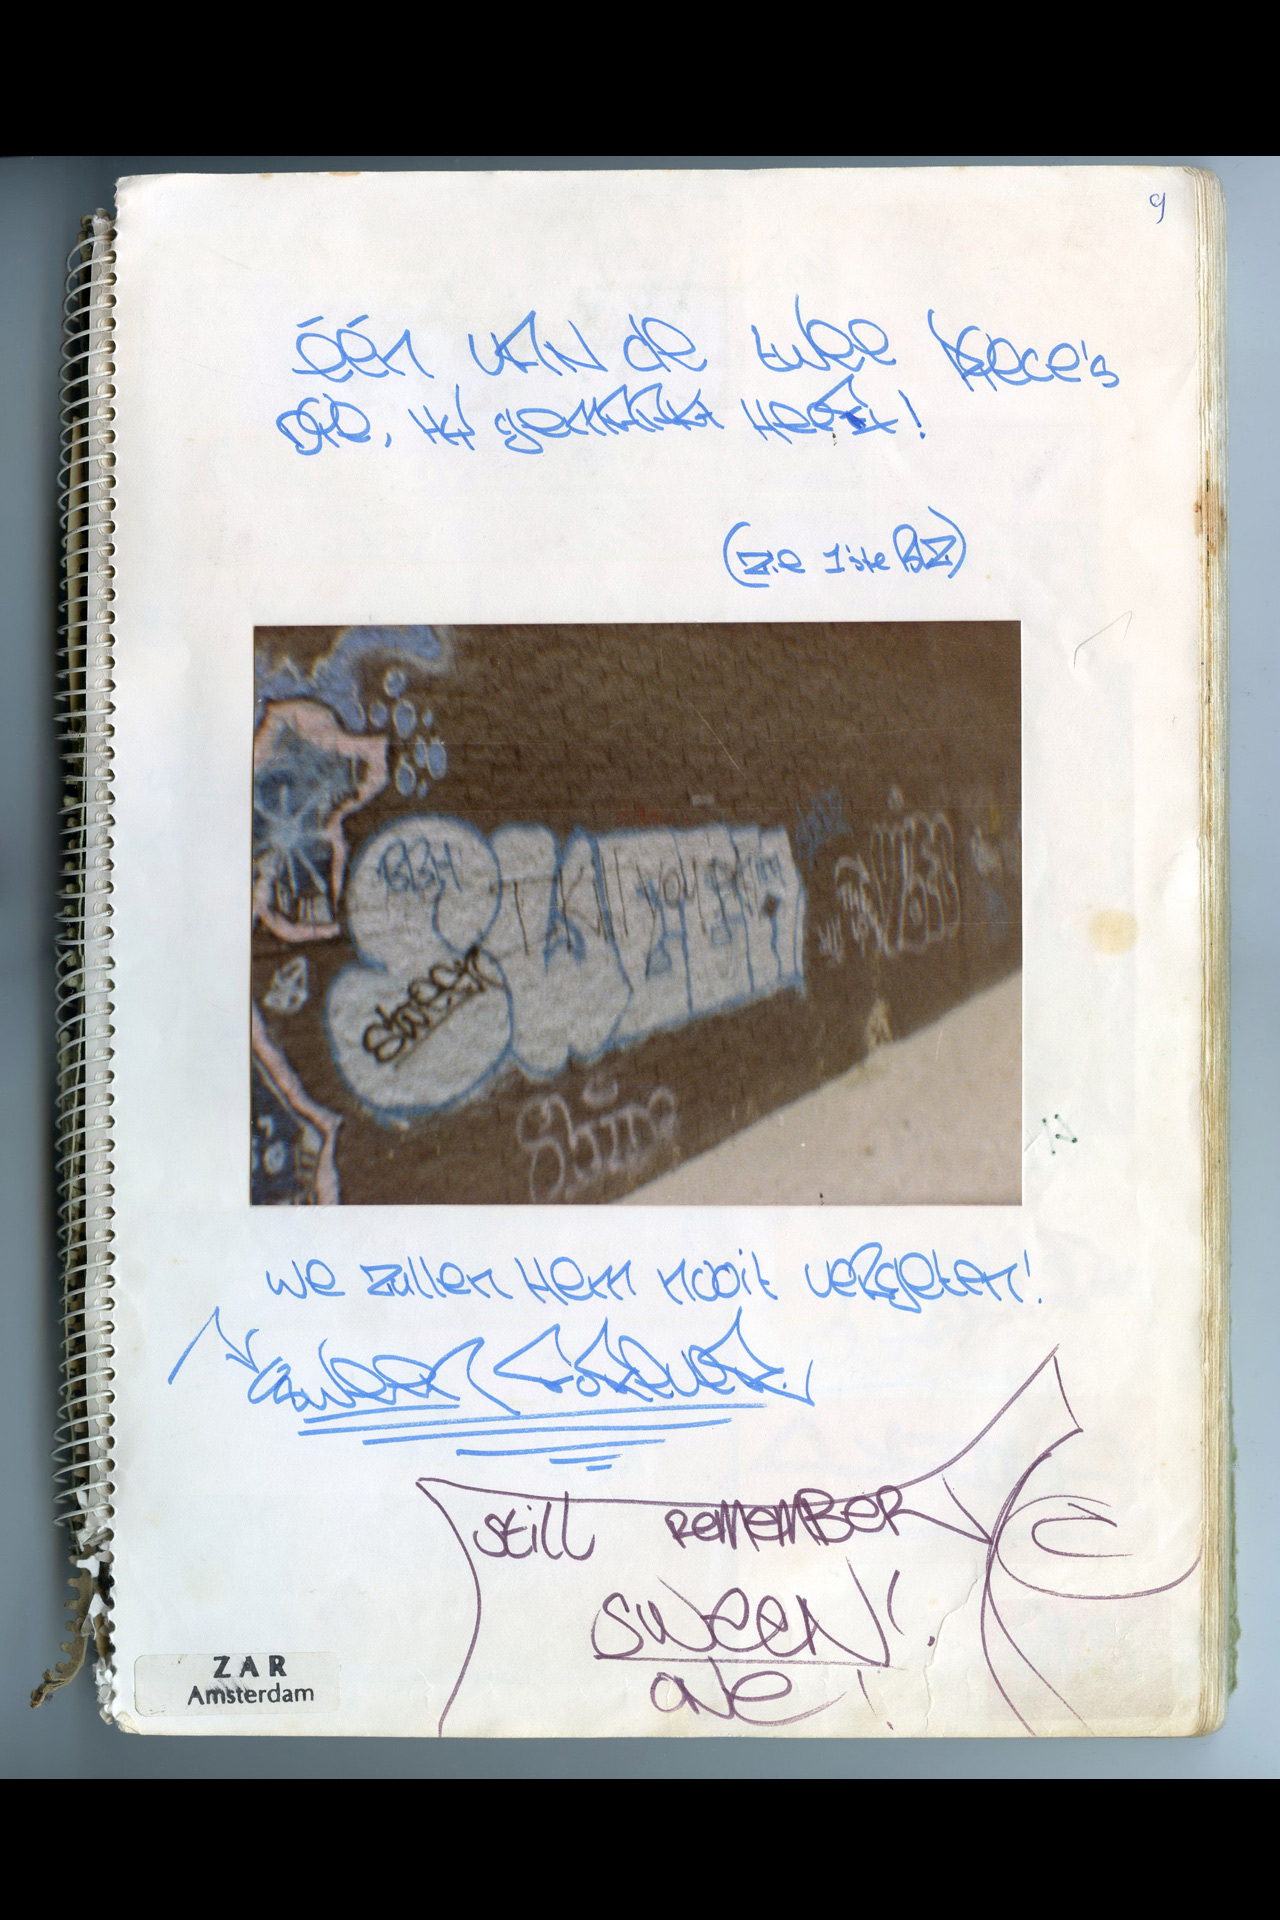 9
één VAN de twee Piece's
die, HY gemaakt Heeft!
(zie 1'ste Blz)
BBH
Sween
Shine
we zullen Hem nooit vergeten!
Sween Forever
still REMEMBER
SWEEN!
ONE!
ZAR
Amsterdam